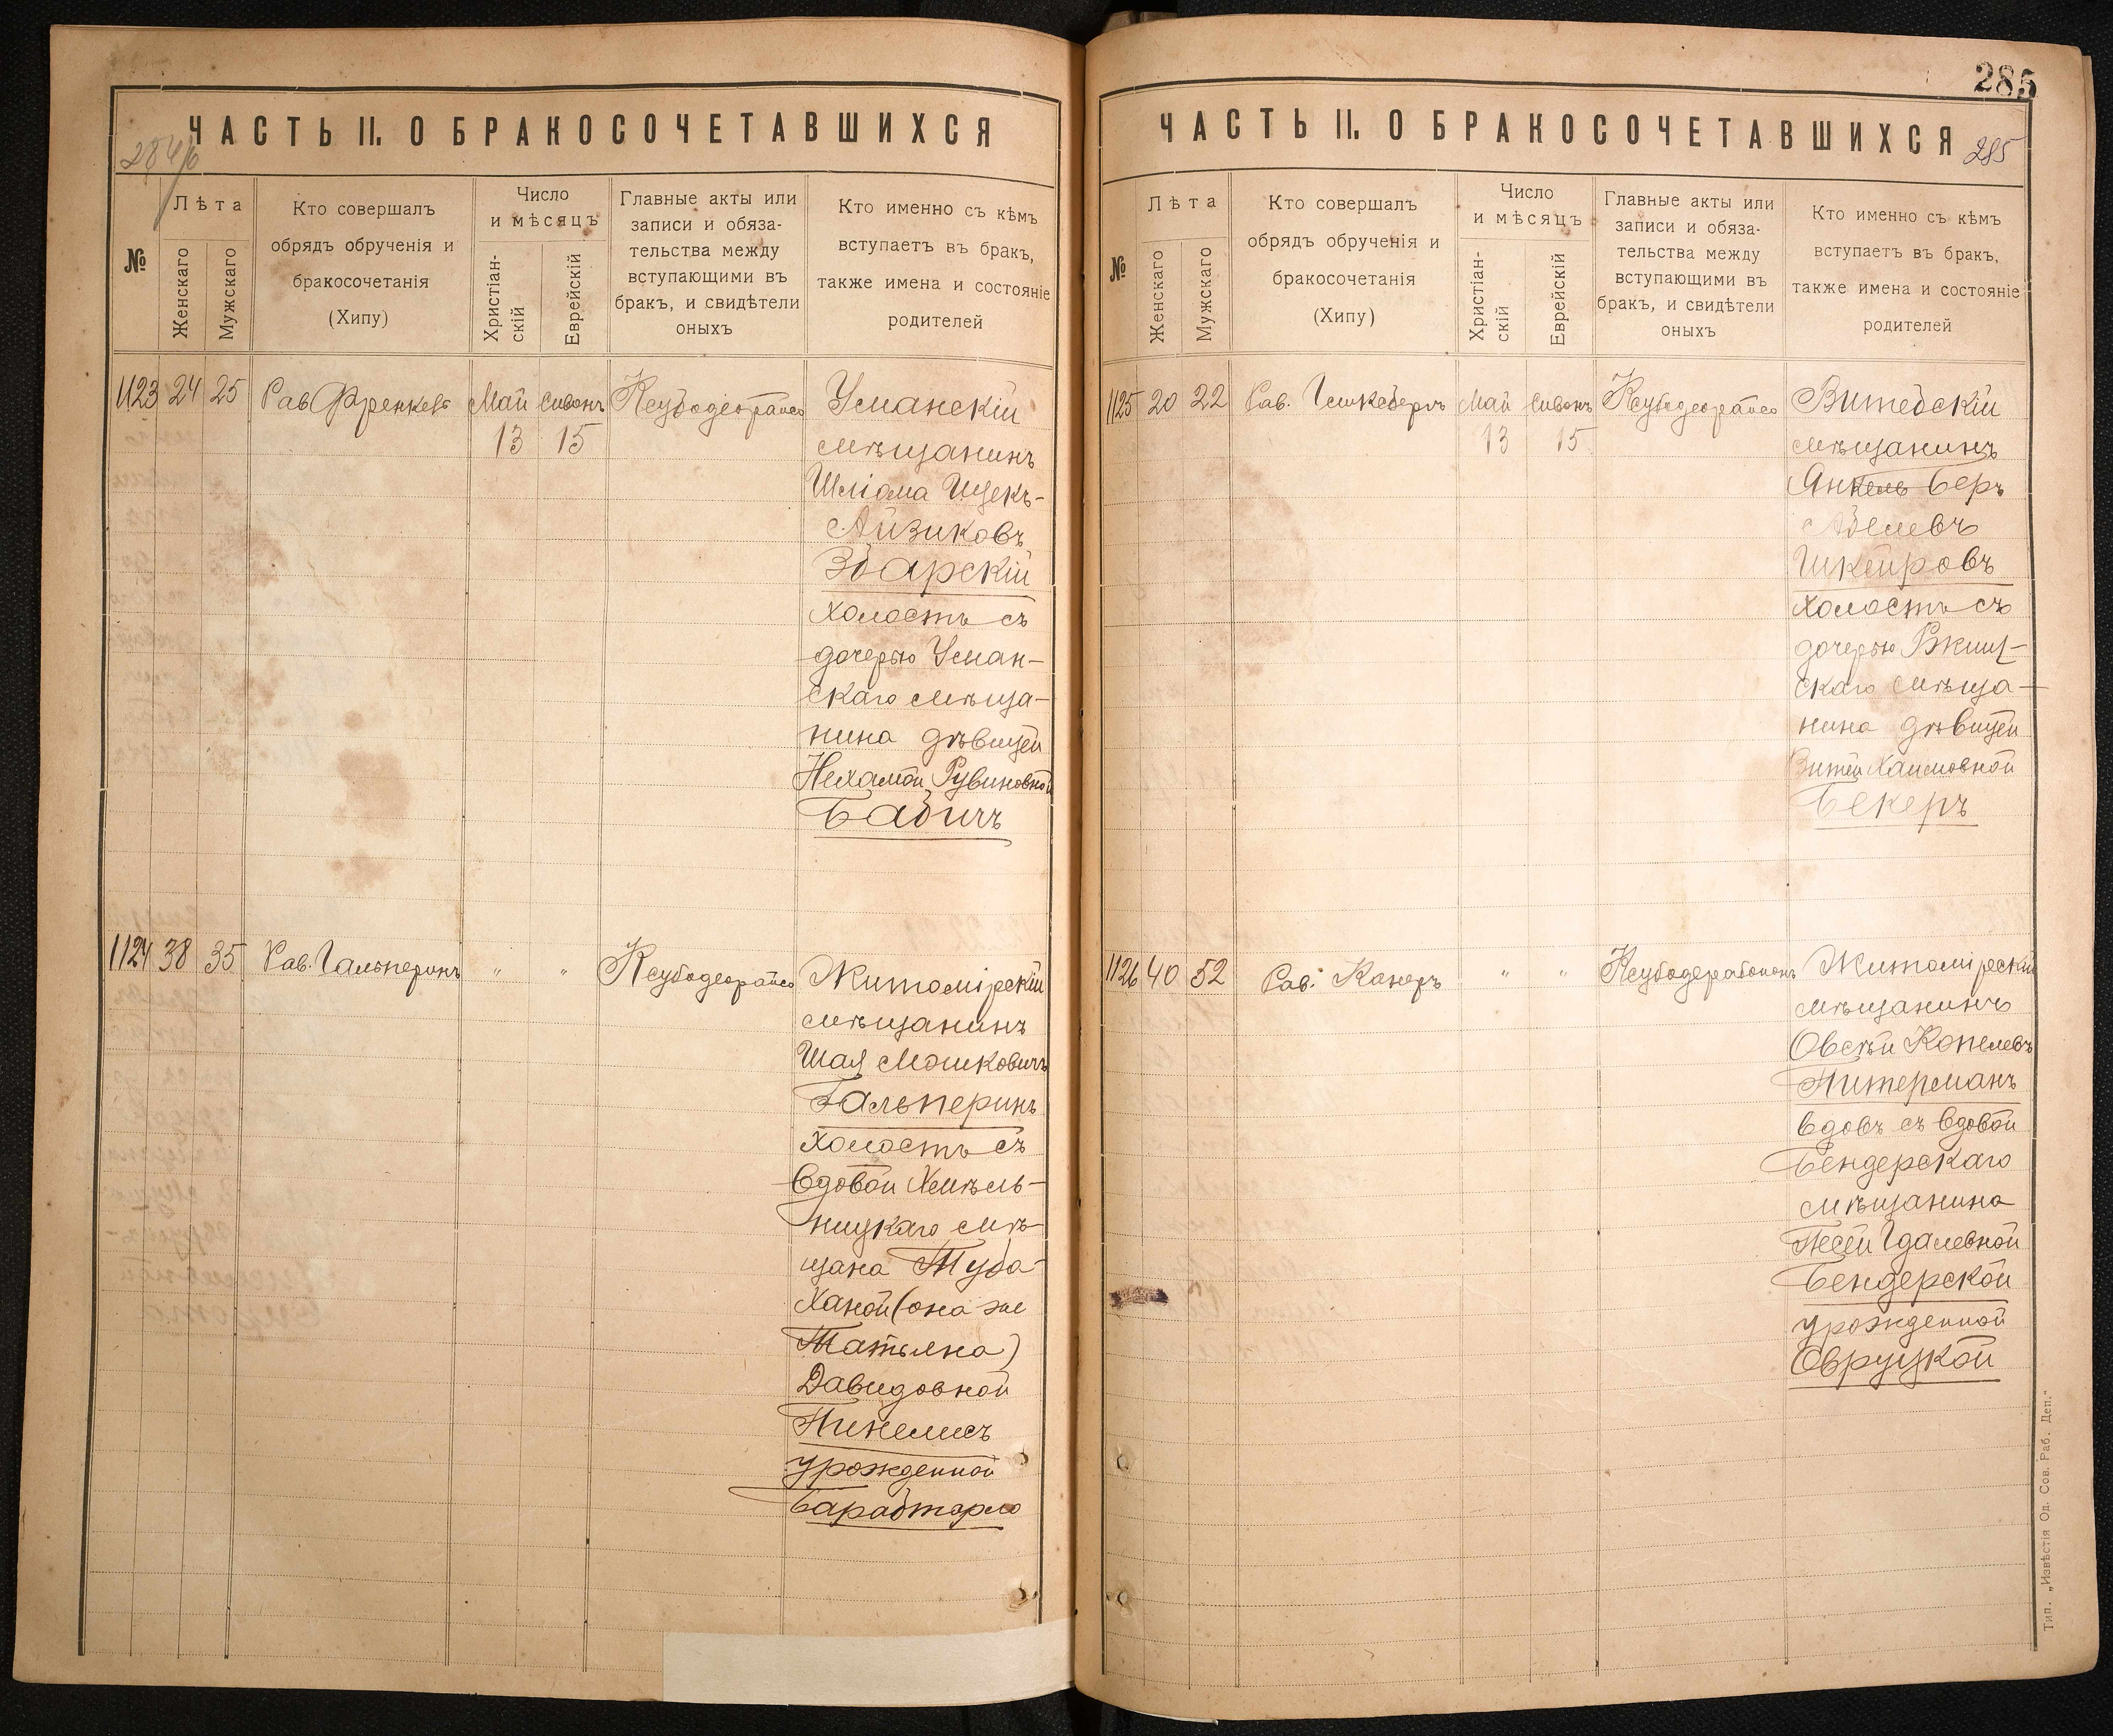 ЧАСТЬ II. О БРАКОСОЧЕТАВШИХСЯ
№
Лѣта
Женскаго
Мужскаго
Кто совершалъ
обрядъ обрученія и
бракосочетанія
(Хипу)
Число
и мѣсяцъ
Христіан-
скій
Еврейскій
Главные акты или
записи и обяза-
тельства между
вступающими въ
бракъ, и свидѣтели
оныхъ
Кто именно съ кѣмъ
вступаетъ въ бракъ,
также имена и состояніе
родителей
1123 24 25 Рав. Френкель Май Сивонъ Ксубодеорайсо
13 15
Уманскій
мѣщанинъ
Шліома
Айзиковъ
Збарскій
холостъ съ
дочерью Уман-
скаго мѣща-
нина дѣвицей
Нехамой Рувиновной
Бабичъ
1124 38 35 Рав. Гальперинъ " " Ксубодеорайсо
Житомірскій
мѣщанинъ
Шая Мошковичъ
Гальперинъ
холостъ съ
вдовой Хмѣль-
ницкаго мѣ-
щана Туба-
Ханой (она же
Татьяна)
Давидовной
Пинелисъ
урожденной
Барабтарло
285
ЧАСТЬ II. О БРАКОСОЧЕТАВШИХСЯ
285
№
Лѣта
Женскаго
Мужскаго
Кто совершалъ
обрядъ обрученія и
бракосочетанія
(Хипу)
Число
и мѣсяцъ
Христіан-
скій
Еврейскій
Главные акты или
записи и обяза-
тельства между
вступающими въ
бракъ, и свидѣтели
оныхъ
Кто именно съ кѣмъ
вступаетъ въ бракъ,
также имена и состояніе
родителей
1125 20 22 Рав. Май Сивонъ Ксубодеорайсо
13 15
Витебскій
мѣщанинъ
Янкель Беръ
Абелевъ
холостъ съ
дочерью Ржищ-
скаго мѣща-
нина дѣвицей
Хаимовной
Бекеръ
1126 40 52 Рав. Канеръ " " Ксубодерабононъ
Житомірскій
мѣщанинъ
Овсѣй Копелевъ
Питерманъ
вдовъ съ вдовой
Бендерскаго
мѣщанина
Песей Гдалевной
Бендерской
урожденной
Овруцкой
Тип. „Извѣстія Од. Сов. Раб. Деп."